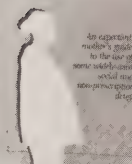 An expectant
mother's guide
to the use of
some widely-used
social and
non-prescription
drugs